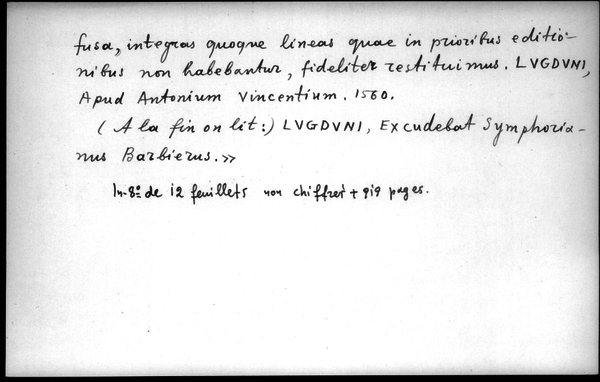 fusa, integras quoque lineas quae in prioribus editio-
nibus non habebantur, fideliter restituimus. LVGDVNI,
Apud Antonium Vincentium. 1560.
( A la fin on lit :) LVGDVNI, Excudebat Symphoria-
nus Barbierus. »
In-8º de 12 feuillets non chiffrés + 919 pages.